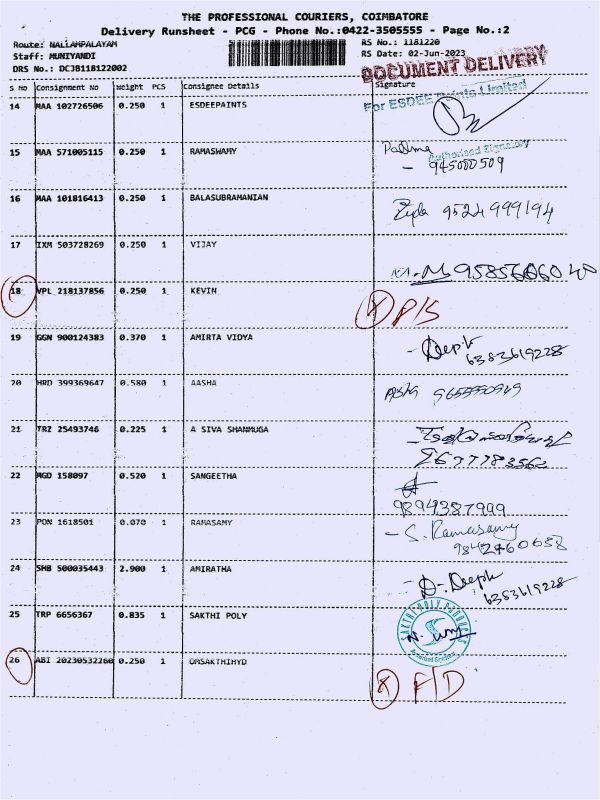 THE PROFESSIONAL COURIERS, COIMBATORE
Delivery Runsheet - PCG - Phone No.:0422-3505555 - Page No.:2
Route: NALLAMPALAYAM
RS No.: 1181220
Staff: MUNIYANDI
RS Date: 02-Jun-2023
DRS No.: DCJB118122002
DOCUMENT DELIVERY
S NO Consignment No Weight PCS Consignee Details Signature
For ESDEE Paints Limited
14 MAA 102726506 0.250 1 ESDEEPAINTS
Authorised Signatory
15 MAA 571005115 0.250 1 RAMASWAMY Padma
16 MAA 101816413 0.250 1 BALASUBRAMANIAN 9524999194
17 IXM 503728269 0.250 1 VIJAY
18 VPL 218137856 0.250 1 KEVIN X P/S
19 GGN 900124383 0.370 1 AMIRTA VIDYA
6383619228
20 HRD 399369647 0.580 1 AASHA
21 TRZ 25493746 0.225 1 A SIVA SHANMUGA
22 MGD 158097 0.520 1 SANGEETHA
9894387999
23 PON 1618501 0.070 1 RAMASAMY - S. Ramasamy
9842460638
24 SHB 500035443 2.900 1 AMIRATHA - D. Deepk
6383619228
25 TRP 6656367 0.835 1 SAKTHI POLY
SAKTHI POLY PRODUCTS
Authorised Signatory
26 ABI 20230532260 0.250 1 OMSAKTHIHYD
X F/D